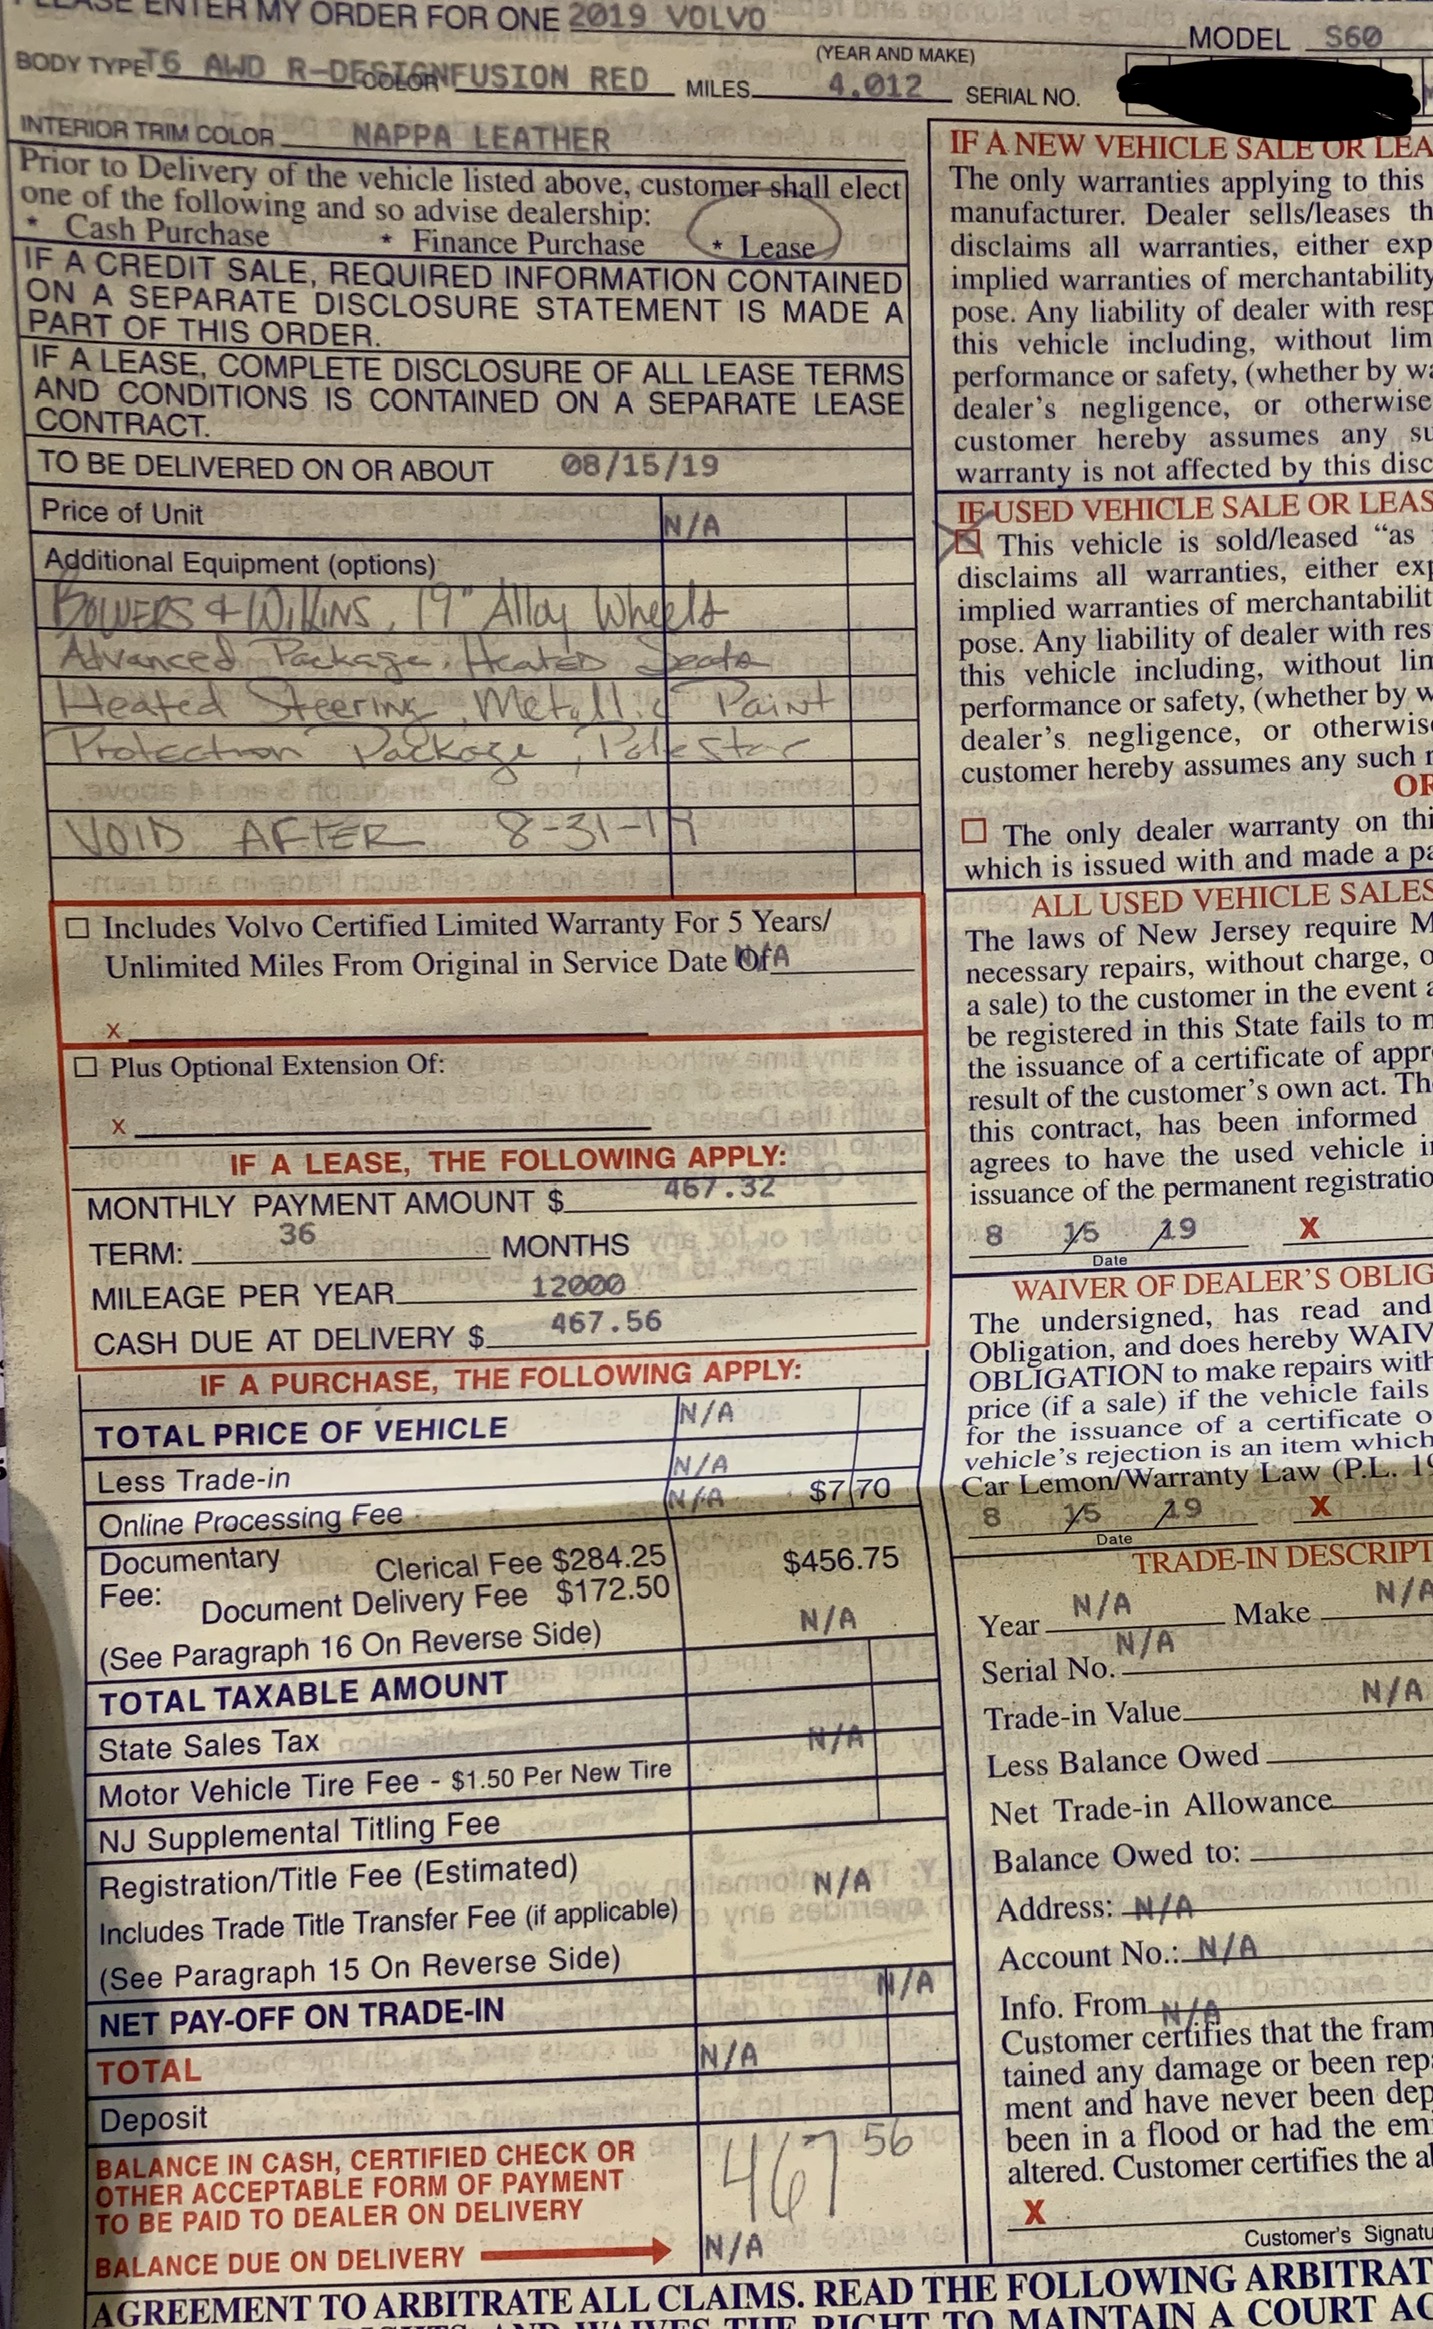 PLEASE ENTER MY ORDER FOR ONE 2019 VOLVO
(YEAR AND MAKE)
MODEL S60
BODY TYPE T6 AWD R-DESIGN COLOR FUSION RED MILES 4,012 SERIAL NO.
INTERIOR TRIM COLOR NAPPA LEATHER
Prior to Delivery of the vehicle listed above, customer shall elect
one of the following and so advise dealership:
* Cash Purchase * Finance Purchase * Lease
IF A CREDIT SALE, REQUIRED INFORMATION CONTAINED
ON A SEPARATE DISCLOSURE STATEMENT IS MADE A
PART OF THIS ORDER.
IF A LEASE, COMPLETE DISCLOSURE OF ALL LEASE TERMS
AND CONDITIONS IS CONTAINED ON A SEPARATE LEASE
CONTRACT.
TO BE DELIVERED ON OR ABOUT 08/15/19
Price of Unit N/A
Additional Equipment (options)
BOWERS & WILKINS, 19" Alloy Wheels
Advanced Package, Heated Seats
Heated Steering, Metallic Paint
Protection Package, PoleStar
VOID AFTER 8-31-19
Includes Volvo Certified Limited Warranty For 5 Years/
Unlimited Miles From Original in Service Date Of N/A
x
Plus Optional Extension Of:
x
IF A LEASE, THE FOLLOWING APPLY:
MONTHLY PAYMENT AMOUNT $ 467.32
TERM: 36 MONTHS
MILEAGE PER YEAR 12000
CASH DUE AT DELIVERY $ 467.56
IF A PURCHASE, THE FOLLOWING APPLY:
TOTAL PRICE OF VEHICLE N/A
Less Trade-in N/A
Online Processing Fee N/A $7 70
Documentary Clerical Fee $284.25 $456.75
Fee: Document Delivery Fee $172.50
(See Paragraph 16 On Reverse Side) N/A
TOTAL TAXABLE AMOUNT
State Sales Tax N/A
Motor Vehicle Tire Fee - $1.50 Per New Tire
NJ Supplemental Titling Fee
Registration/Title Fee (Estimated) N/A
Includes Trade Title Transfer Fee (if applicable)
(See Paragraph 15 On Reverse Side)
NET PAY-OFF ON TRADE-IN N/A
TOTAL N/A
Deposit
BALANCE IN CASH, CERTIFIED CHECK OR
OTHER ACCEPTABLE FORM OF PAYMENT
TO BE PAID TO DEALER ON DELIVERY
467 56
BALANCE DUE ON DELIVERY N/A
IF A NEW VEHICLE SALE OR LEA
The only warranties applying to this
manufacturer. Dealer sells/leases th
disclaims all warranties, either exp
implied warranties of merchantability
pose. Any liability of dealer with resp
this vehicle including, without lim
performance or safety, (whether by wa
dealer's negligence, or otherwise
customer hereby assumes any su
warranty is not affected by this disc
IF USED VEHICLE SALE OR LEAS
This vehicle is sold/leased "as
disclaims all warranties, either exp
implied warranties of merchantabilit
pose. Any liability of dealer with res
this vehicle including, without lim
performance or safety, (whether by w
dealer's negligence, or otherwise
customer hereby assumes any such r
OR
The only dealer warranty on thi
which is issued with and made a pa
ALL USED VEHICLE SALES
The laws of New Jersey require M
necessary repairs, without charge, o
a sale) to the customer in the event a
be registered in this State fails to m
the issuance of a certificate of appr
result of the customer's own act. The
this contract, has been informed
agrees to have the used vehicle in
issuance of the permanent registratio
8 15 19 X
Date
WAIVER OF DEALER'S OBLIG
The undersigned, has read and
Obligation, and does hereby WAIV
OBLIGATION to make repairs with
price (if a sale) if the vehicle fails
for the issuance of a certificate o
vehicle's rejection is an item which
Car Lemon/Warranty Law (P.L. 19
8 15 19 X
Date
TRADE-IN DESCRIPT
Year N/A Make N/A
Serial No. N/A
Trade-in Value N/A
Less Balance Owed
Net Trade-in Allowance
Balance Owed to:
Address: N/A
Account No.: N/A
Info. From N/A
Customer certifies that the fram
tained any damage or been repa
ment and have never been dep
been in a flood or had the em
altered. Customer certifies the a
X
Customer's Signatu
AGREEMENT TO ARBITRATE ALL CLAIMS. READ THE FOLLOWING ARBITRAT
THE RIGHT TO MAINTAIN A COURT AC